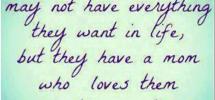 may not have everything
they want in life,
but they have a mom
who loves them